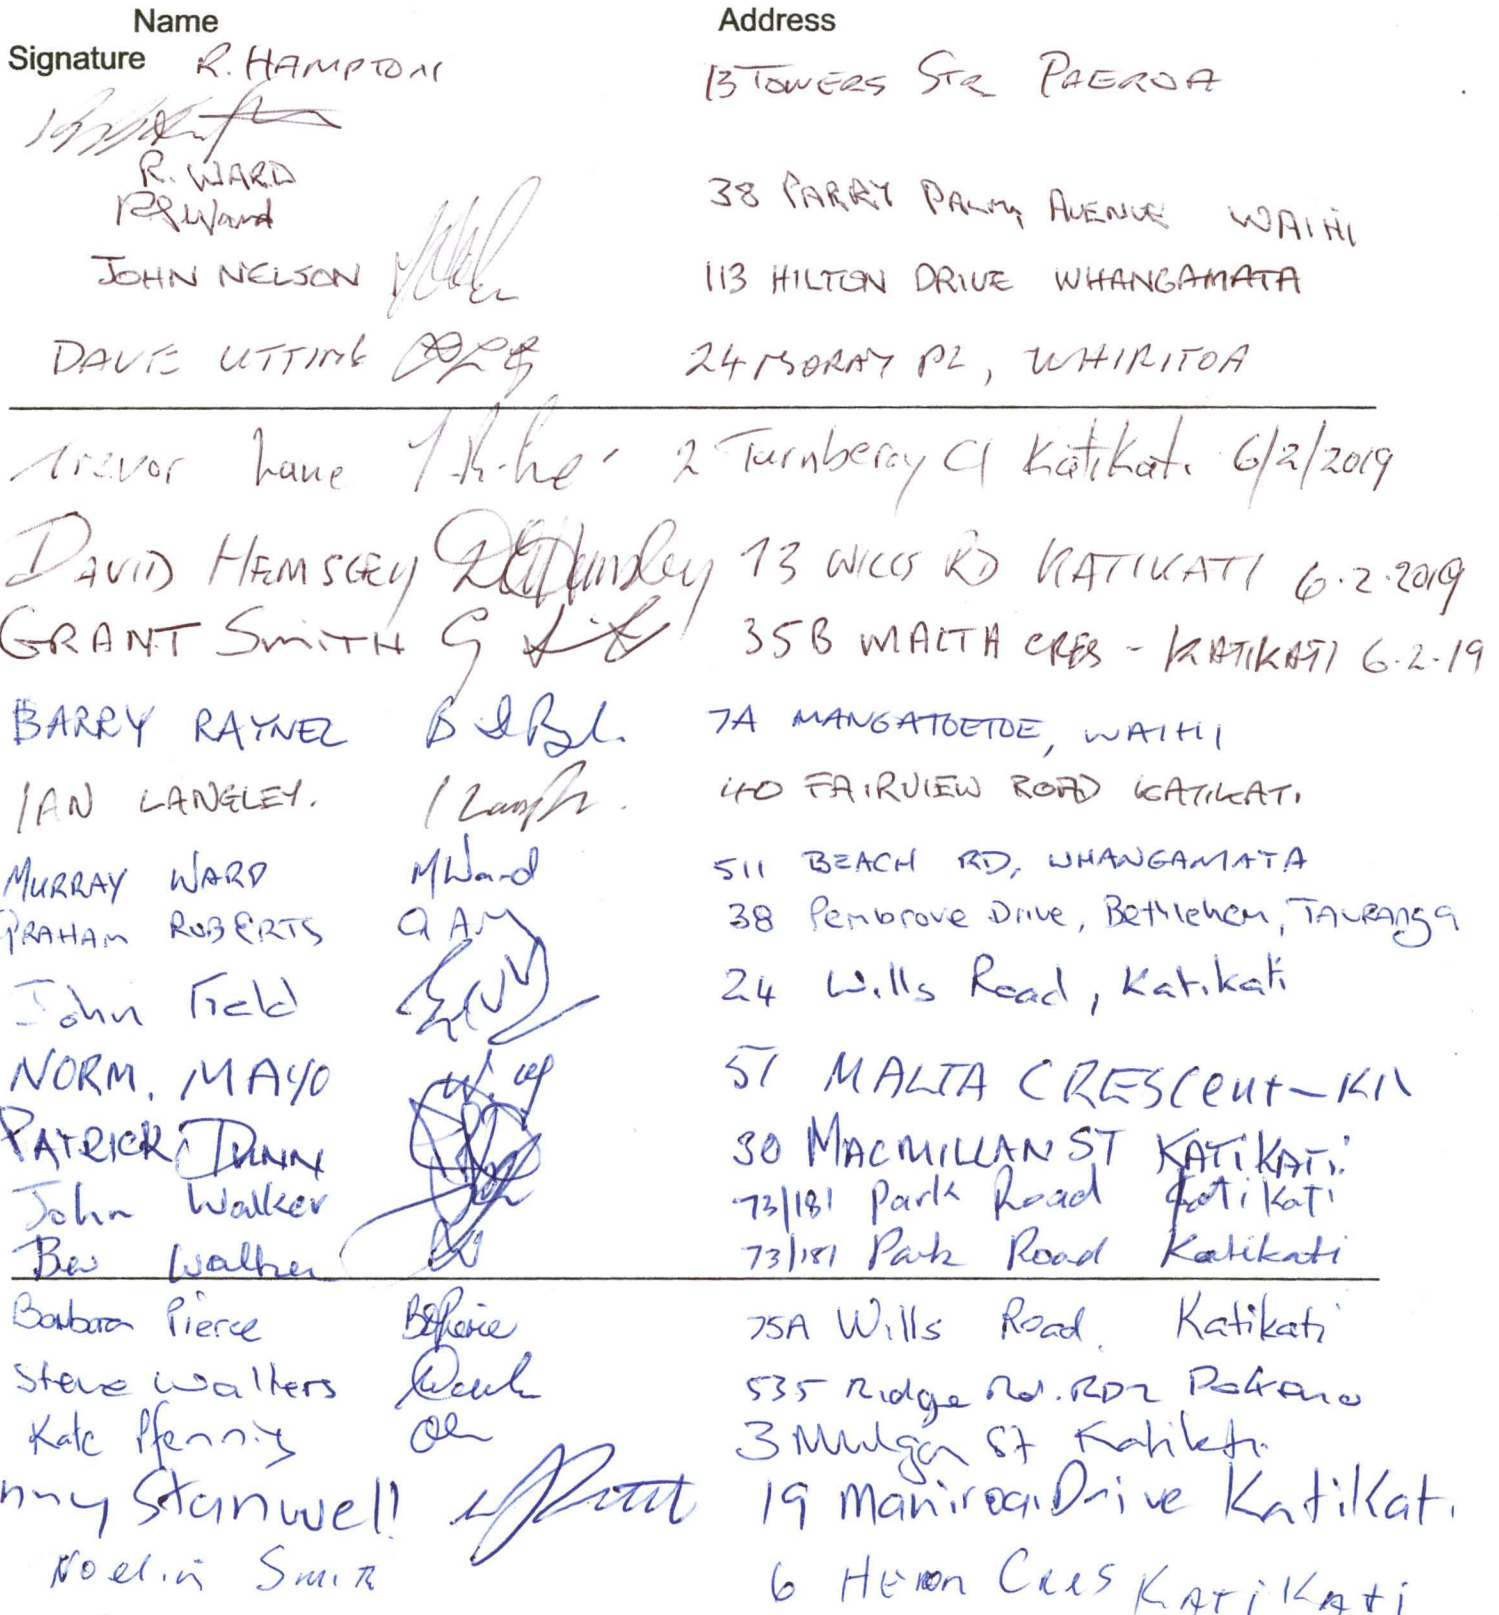 Name Address
Signature R. HAMPTON 13 TOWERS STR PAEROA
R. WARD
R Ward 38 PARRY PALM AVENUE WAIHI
JOHN NELSON 113 HILTON DRIVE WHANGAMATA
DAVE UTTING 24 MORAY PL, WHIRITOA
Trevor Lane 2 Turnberry Cl Katikati 6/2/2019
DAVID HEMSLEY Hemsley 13 WILLS RD KATIKATI 6.2.2019
GRANT SMITH G 35B MALTA CRES - KATIKATI 6.2.19
BARRY RAYNER 7A MANGATOETOE, WAIHI
IAN LANGLEY. 40 FAIRVIEW ROAD KATIKATI
MURRAY WARD MWard 511 BEACH RD, WHANGAMATA
GRAHAM ROBERTS 38 Pembrove Drive, Bethlehem, TAURANGA
John Field 24 Wills Road, Katikati
NORM. MAYO 57 MALTA CRESCent -
PATRICK DUNN 30 MACMILLAN ST KATiKATi.
John Walker 73/181 Park Road Katikati
Bev Walker 73/181 Park Road Katikati
Barbara Pierce 75A Wills Road. Katikati
Steve Walters 535 Ridge Rd. RD2
Kate Pfennig 3 Mulgan St Katikati.
nny Stanwell 19 Maniroa Drive Katikati.
Noelin Smith 6 Heron Cres KATiKAti